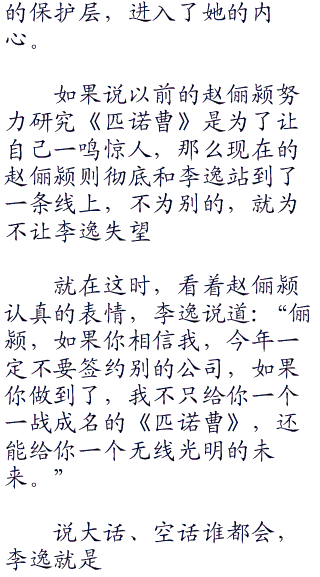 的保护层，进入了她的内
心。
如果说以前的赵俪颍努
力研究《匹诺曹》是为了让
自己一鸣惊人，那么现在的
赵俪颍则彻底和李逸站到了
一条线上，不为别的，就为
不让李逸失望
就在这时，看着赵俪颍
认真的表情，李逸说道：“俪
颍，如果你相信我，今年一
定不要签约别的公司，如果
你做到了，我不只给你一个
一战成名的《匹诺曹》，还
能给你一个无线光明的未
来。”
说大话、空话谁都会，
李逸就是